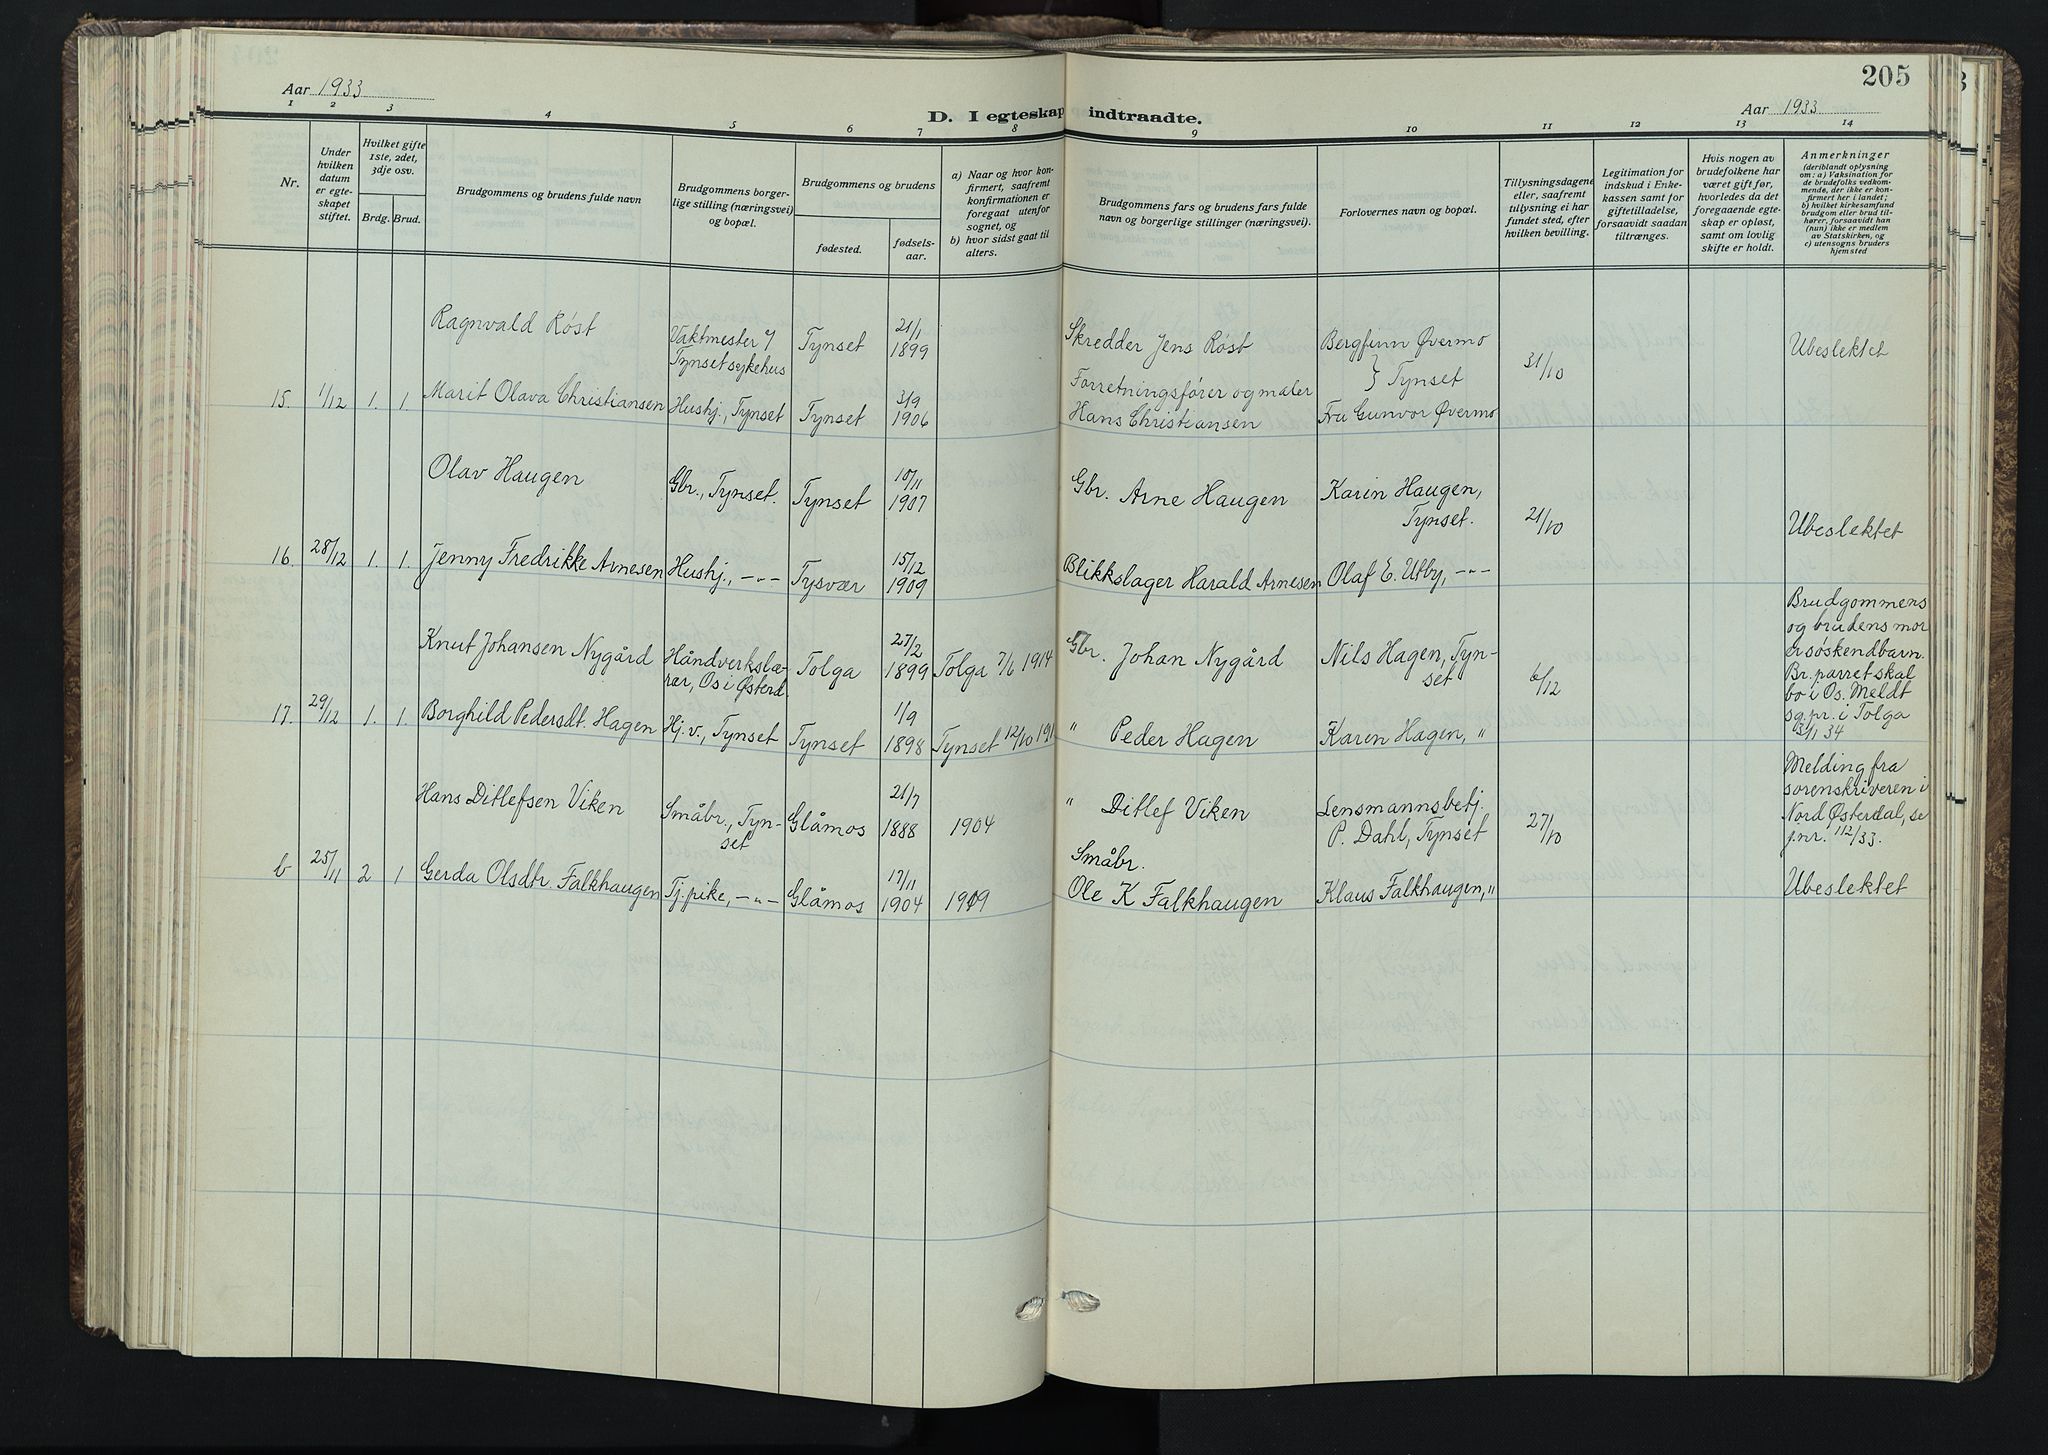 Aar 1933
205
D. I egteskap indtraadte.
Aar 1933
1 2 3 4 5 6 7 8 9 10 11 12 13 14
Nr.
Under hvilken datum er egteskapet stiftet.
Hvilket gifte 1ste, 2det, 3dje osv.
Brdg. Brud.
Brudgommens og brudens fulde navn
Brudgommens borgerlige stilling (næringsvei) og bopæl.
Brudgommens og brudens
fødested.
fødselsaar.
a) Naar og hvor konfirmert, saafremt konfirmationen er foregaat utenfor sognet, og
b) hvor sidst gaat til alters.
Brudgommens fars og brudens fars fulde navn og borgerlige stillinger (næringsvei).
Forlovernes navn og bopæl.
Tillysningsdagene eller, saafremt tillysning ei har fundet sted, efter hvilken bevilling.
Legitimation for indskud i Enkekassen samt for giftetilladelse, forsaavidt saadan tiltrænges.
Hvis nogen av brudefolkene har været gift før, hvorledes da det foregaaende egteskap er opløst, samt om lovlig skifte er holdt.
Anmerkninger
(deriblandt oplysning om: a) Vaksination for de brudefolks vedkommende, der ikke er konfirmert her i landet; b) hvilket kirkesamfund brudgom eller brud tilhører, forsaavidt han (hun) ikke er medlem av Statskirken, og c) utensogns bruders hjemsted
Ragnvald Røst
Vaktmester v/ Tynset sykehus
Tynset
21/1 1899
Skredder Jens Røst
Bergfinn Øvermo
} Tynset
31/10
Ubeslektet
15. 1/12 1. 1.
Marit Olava Christiansen
Hushj., Tynset
Tynset
3/9 1906
Forretningsfører og maler
Hans Christiansen
Fru Gunvor Øvermo
Olav Haugen
Gbr., Tynset.
Tynset
10/11 1907
Gbr. Arne Haugen
Karin Haugen, Tynset.
21/10
Ubeslektet
16. 28/12 1. 1.
Jenny Fredrikke Arnesen
Hushj., -"-
Tysvær
15/12 1909
Blikkslager Harald Arnesen
Olaf E. Utby, -"-
Knut Johansen Nygård
Håndverkslærer, Os i Østerd.
Tolga
27/2 1899
Tolga 7/6 1914
Gbr. Johan Nygård
Nils Hagen, Tynset
6/12
Brudgommens
og brudens mor
er søskendbarn.
Br. parret skal
bo i Os. Meldt
sg.pr. i Tolga
3/1 34
17. 29/12 1. 1.
Borghild Pedersdt. Hagen
Hj.v., Tynset
Tynset
1/9 1898
Tynset 12/10 191
" Peder Hagen
Karen Hagen, "
Hans Ditlefsen Viken
Småbr., Tynset
Glåmos
21/7 1888
1904
" Ditlef Viken
Lensmannsbetj.
P. Dahl, Tynset
27/10
Melding fra
sorenskriveren i
Nord Østerdal, se
j.nr. 112/33.
b 25/11 2 1
Gerda Olsdtr. Falkhaugen
Tj.pike, -"-
Glåmos
17/11 1904
1919
Småbr.
Ole K Falkhaugen
Klaus Falkhaugen, "
Ubeslektet